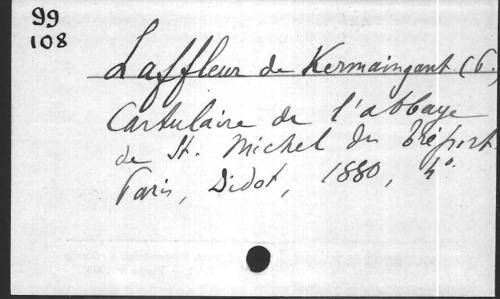 99
108
Laffleur de Kermaingant (P.)
Cartulaire de l'abbaye
de St. Michel du Tréport.
Paris, Didot, 1880, 4º.